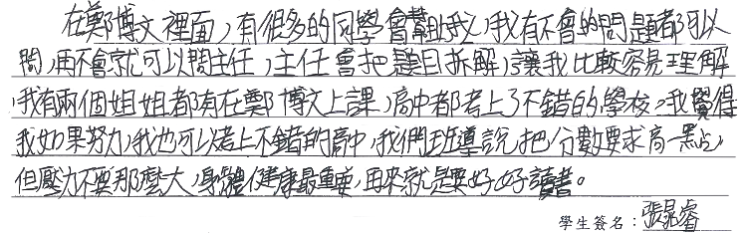 在鄭博文裡面,有很多的同學會幫助我,我有不會的問題都可以
問,再不會就可以問主任,主任會把題目拆解,讓我比較容易理解
,我有兩個姐姐都有在鄭博文上課,高中都考上了不錯的學校。我覺得
我如果努力,我也可以考上不錯的高中,我們班導說,把分數要求高一點,
但壓力不要那麼大,身體健康最重要,再來就是要好好讀書。
學生簽名:張晁睿